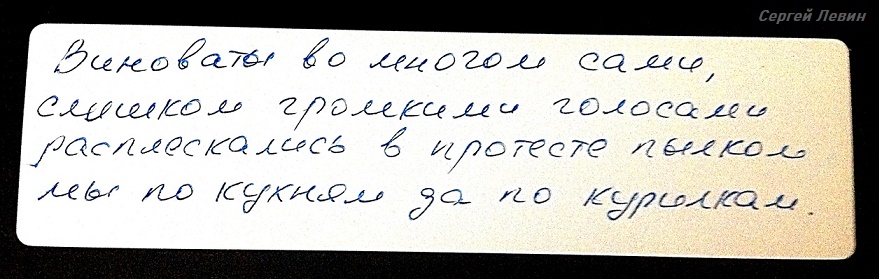 Сергей Левин
Виноваты во многом сами,
слишком громкими голосами
расплескались в протесте пылком
мы по кухням да по курилкам.